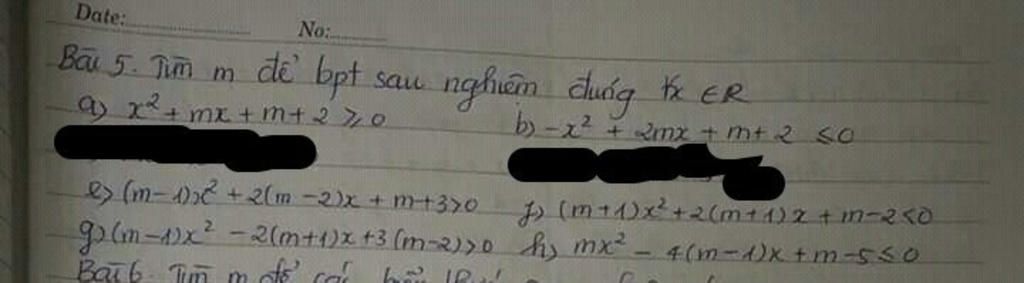 Date: No:
Bài 5. Tìm m để bpt sau nghiệm đúng ∀x ∈ R
a) x² + mx + m + 2 ≥ 0 b) -x² + 2mx + m + 2 ≤ 0
e) (m-1)x² + 2(m-2)x + m+3>0 f) (m+1)x² + 2(m+1)x + m-2<0
g) (m-1)x² - 2(m+1)x + 3(m-2)>0 h) mx² - 4(m-1)x + m-5≤0
Bài 6. Tìm m để